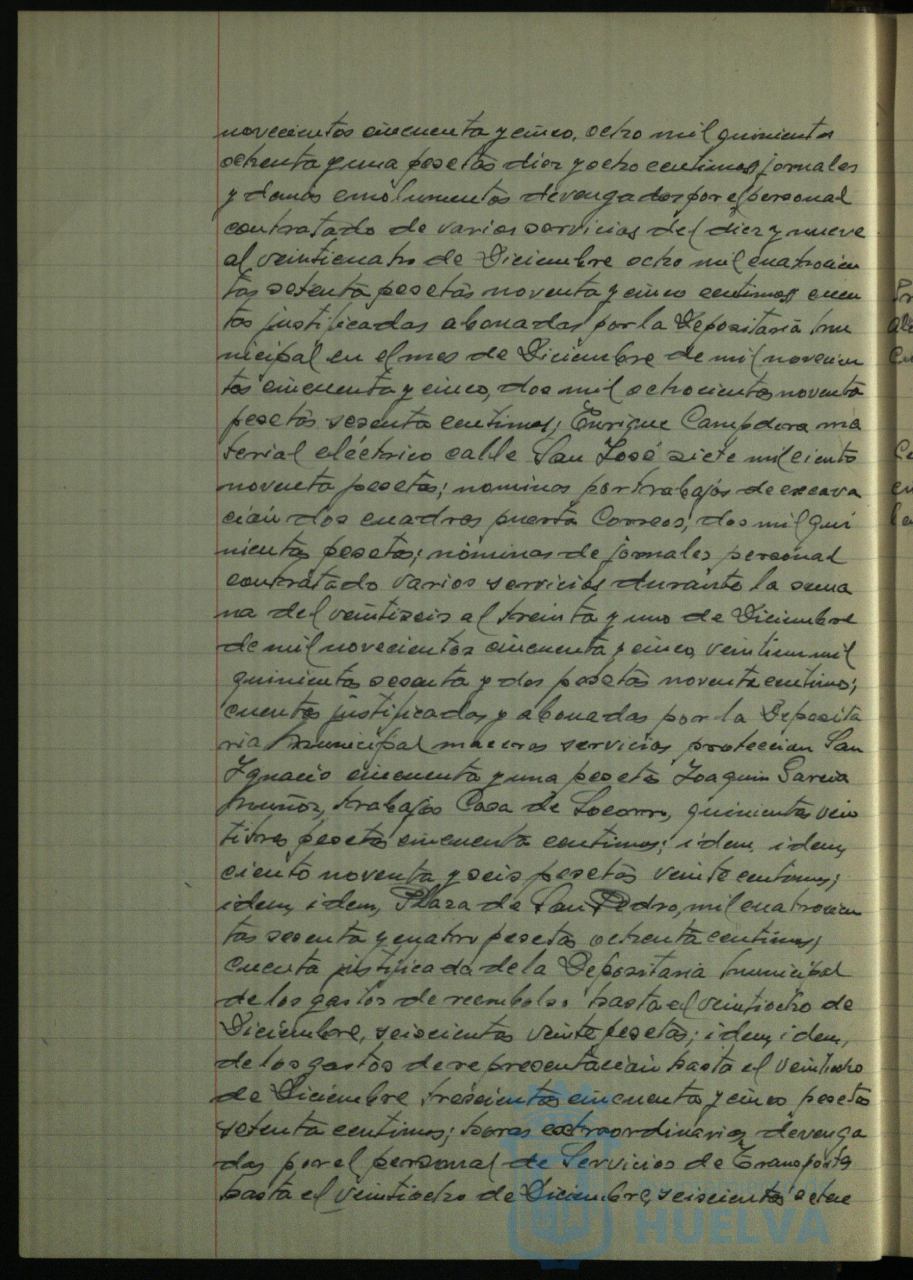 novecientos cincuenta y cinco, ocho mil quinientas
ochenta y una pesetas diez y ocho centimos, jornales
y demás emolumentos devengados por el personal
contratado de varios servicios del diez y nueve
al veinticuatro de Diciembre ocho mil cuatrocien
tas setenta pesetas noventa y cinco centimos, cuen
tas justificadas abonadas por la Depositaría Mu
nicipal en el mes de Diciembre de mil novecien
tos cincuenta y cinco, dos mil ochocientas noventa
pesetas sesenta centimos; Enrique Campdera ma
terial eléctrico calle San José siete mil ciento
noventa pesetas; nominas por trabajos de excava
ción dos cuadros puerta Correos, dos mil qui
nientas pesetas; nóminas de jornales personal
contratado varios servicios durante la sema
na del veintiseis al treinta y uno de Diciembre
de mil novecientos cincuenta y cinco, veintiun mil
quinientas sesenta y dos pesetas noventa centimos;
cuentas justificadas y abonadas por la Deposita
ria Municipal servicios protección San
Ignacio cincuenta y una pesetas Joaquin Garcia
Muñoz, trabajos Casa de Socorro, quinientas vein
titres pesetas cincuenta centimos; idem, idem,
ciento noventa y seis pesetas veinte centimos;
idem, idem, Plaza de San Pedro, mil cuatrocien
tas sesenta y cuatro pesetas ochenta centimos;
cuenta justificada de la Depositaria Municipal
de los gastos de reembolso hasta el veintiocho de
Diciembre, seiscientas veinte pesetas; idem, idem,
de los gastos de representación hasta el veintiocho
de Diciembre trescientas cincuenta y cinco pesetas
setenta centimos; horas extraordinarias devenga
das por el personal de Servicios de Transportes
hasta el veintiocho de Diciembre, seiscientas seten
HUELVA